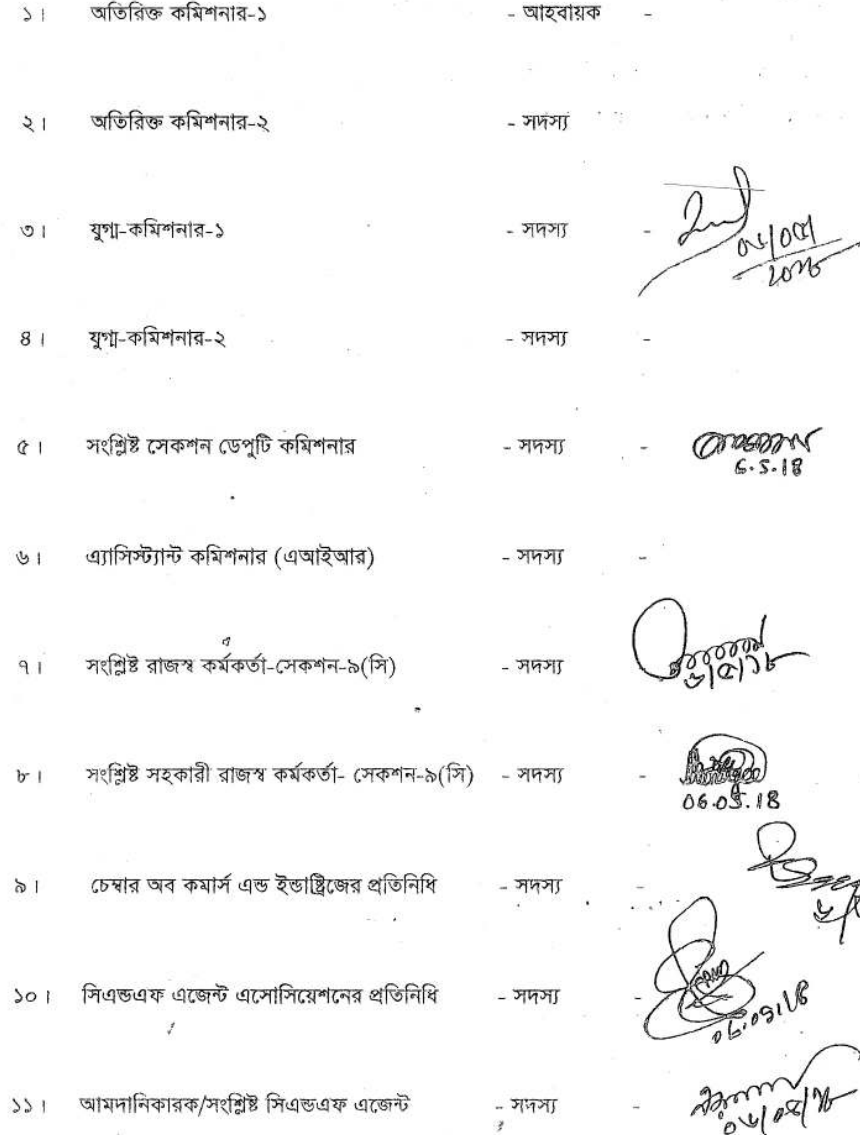 ১। অতিরিক্ত কমিশনার-১ - আহবায়ক -
২। অতিরিক্ত কমিশনার-২ - সদস্য
৩। যুগ্ম-কমিশনার-১ - সদস্য - ০৬/০৫/২০১৮
৪। যুগ্ম-কমিশনার-২ - সদস্য -
৫। সংশ্লিষ্ট সেকশন ডেপুটি কমিশনার - সদস্য - 6.5.18
৬। এ্যাসিস্ট্যান্ট কমিশনার (এআইআর) - সদস্য -
৭। সংশ্লিষ্ট রাজস্ব কর্মকর্তা-সেকশন-৯(সি) - সদস্য - ৬/৫/১৮
৮। সংশ্লিষ্ট সহকারী রাজস্ব কর্মকর্তা- সেকশন-৯(সি) - সদস্য - 06.05.18
৯। চেম্বার অব কমার্স এন্ড ইন্ডাষ্ট্রিজের প্রতিনিধি - সদস্য -
১০। সিএন্ডএফ এজেন্ট এসোসিয়েশনের প্রতিনিধি - সদস্য -
১১। আমদানিকারক/সংশ্লিষ্ট সিএন্ডএফ এজেন্ট - সদস্য - ০৬/০৫/১৮